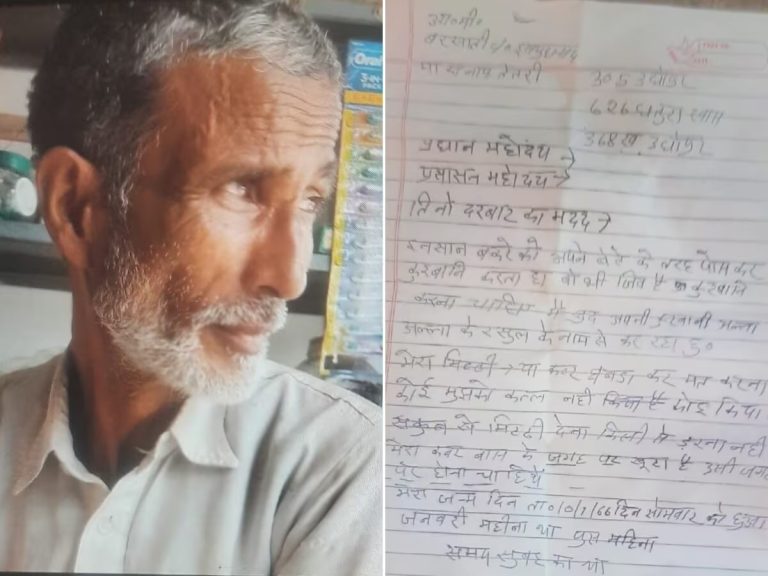 Oral
3-IN-
PACK
उ०प्र०
305 उधोपुर
626 धतुरा खास
368 ख उधोपुर
प्रधान महोदय →
प्रसासन महोदय →
तिनो दरबार का मदद →
इनसान बकरे को अपने बेटे के तरह पोस कर
कुरबानि करता है। वो भी जिव है कुरबानि
करना चाहिए मै खुद अपनी कुरबानी
अल्ला के रसुल के नाम से कर रहा हु०
मेरा मिट्टी → या कबर घबड़ा कर मत करना
कोई मुझको कत्ल नही किया है
सकुन से मिट्टी देना किसी से डरना नही
मेरा कबर बास के जगह पर खुटा है उसी जगह
पर होना चाहिये
मेरा जन्म दिन ता० /0/1/66 दिन सोमबार को हुआ
जनवरी महीना था पुस महिना
समय सुबह का था